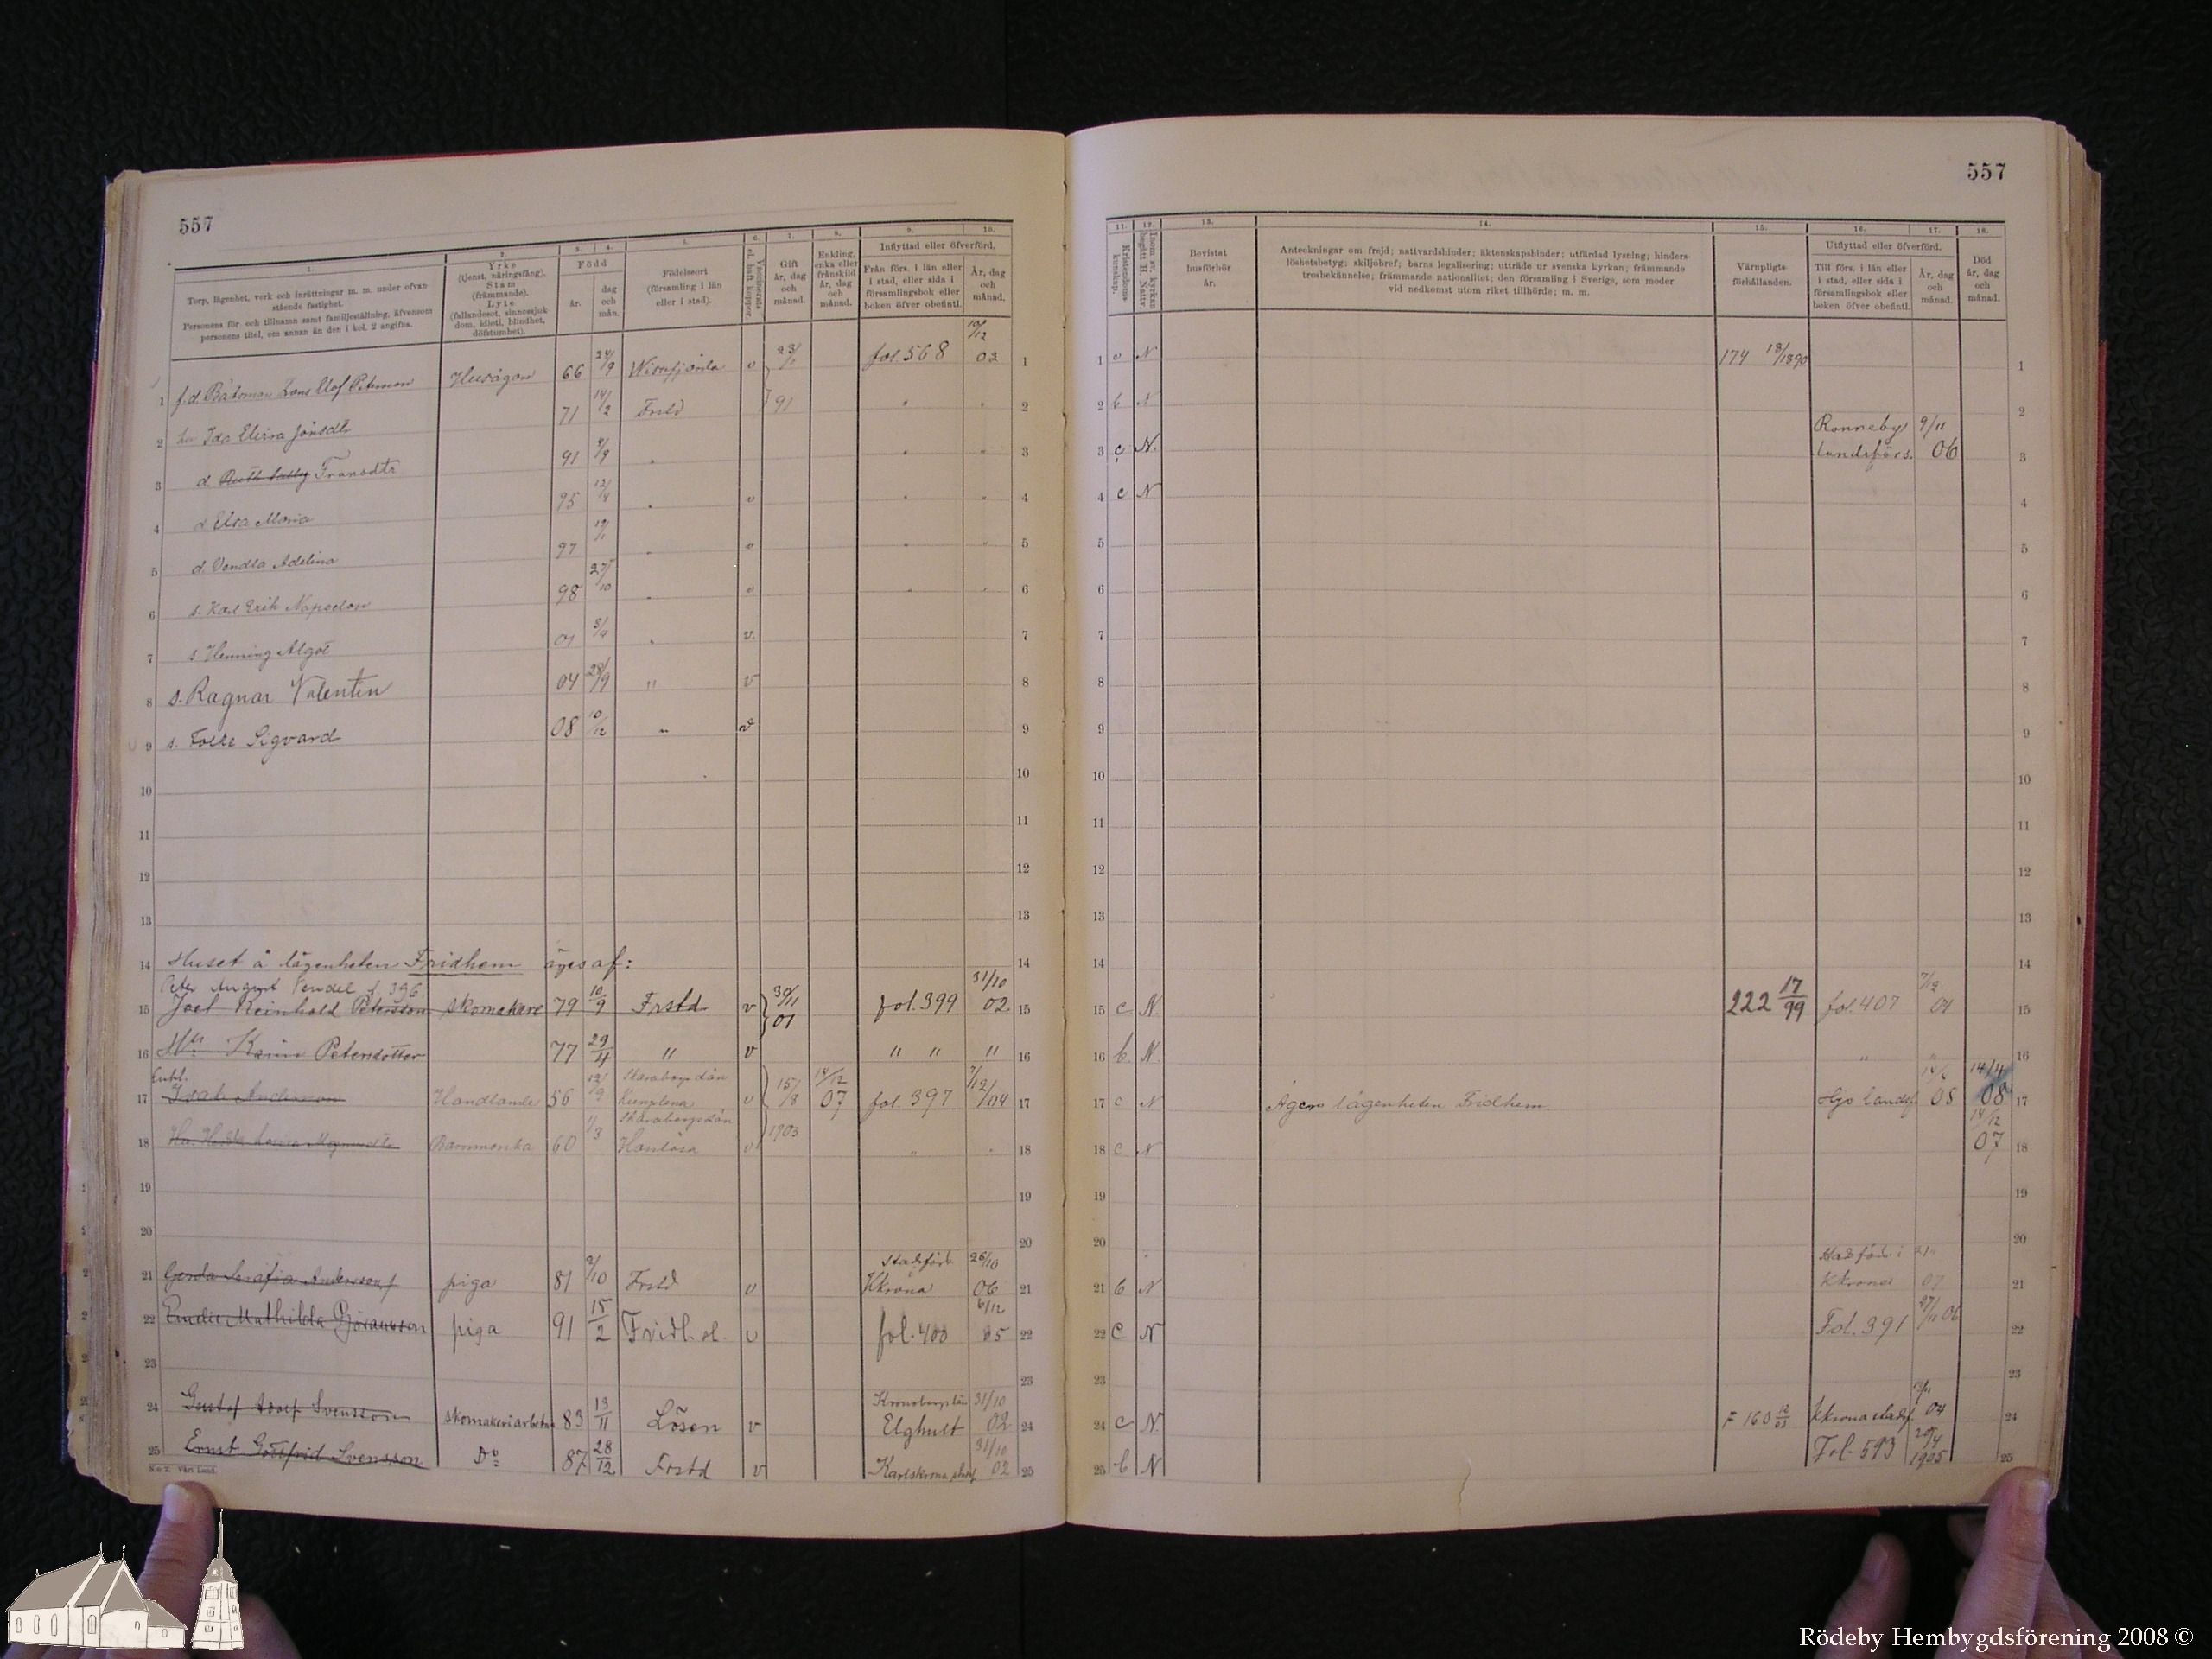 557
1. 2. 3. 4. 5. 6. 7. 8. 9. 10.
Torp, lägenhet, verk och inrättningar m. m. under ofvan
stående fastighet.
Personens för- och tillnamn samt familjeställning, äfvensom
personens titel, om annan än den i kol. 2 angifna.
Yrke
(tjenst, näringsfång),
Stam
(främmande).
Lyte
(fallandesot, sinnessjuk
dom, idioti, blindhet,
döfstumhet).
Född
år.
dag
och
mån.
Födelseort
(församling i län
eller i stad).
Vaccinerats
el. haft koppor.
Gift
år, dag
och
månad.
Enkling,
enka eller
frånskild
år, dag
och
månad.
Inflyttad eller öfverförd.
Från förs. i län eller
i stad, eller sida i
församlingsbok eller
boken öfver obefintl.
År, dag
och
månad.
1 f.d. Båtsman Olof Peterson Husägare 66 24/9 Wissefjerda v 23/1 fol. 568 10/12 02 1
2 Ida Elvira Jönsdtr 71 14/2 Frstd 91 " " 2
3 d Fransdtr 91 4/9 " " " 3
4 d Elsa Maria 95 12/4 " v " " 4
5 d. Vendla Adelina 97 19/1 " v " " 5
6 s. Karl Erik Napoelon 98 27/10 " v " " 6
7 s Henning Algot 01 5/9 " v. 7
8 s. Ragnar Valentin 04 28/9 " v 8
9 s. Folke Sigvard 08 10/12 " v 9
10 10
11 11
12 12
13 13
14 Huset å lägenheten Fridhem äges af: 14
Peter August Vendel f. 396
15 Joel Reinhold Petersson skomakare 79 10/9 Frstd v 30/11 01 fol. 399 31/10 02 15
16 Karin Petersdotter 77 29/4 " v " " " 16
Enkl.
17 Isak Andersson Handlande 56 12/9 Skaraborgs Län v 15/8 1903 14/12 07 fol. 397 7/12/04 17
18 Barnmorska 60 11/3 Skaraborgs Län v " " 18
19 19
20 20
21 Gerda Serafia Andersson piga 81 9/10 Frstd v Stadsförs. Kkrona 26/10 06 21
22 Emelie Mathilda Göransson piga 91 15/2 Fridl. v fol. 400 6/12 05 22
23 23
24 Gustaf Adolf Svensson skomakeriarbetar 83 13/11 Lösen v Kronobergs län Elghult 31/10 02 24
25 Ernst Gottfrid Svensson Do 87 28/12 Frstd v Karlskrona stadsf 31/10 02 25
No 2. Vårt Land.
557
11. 12. 13. 14. 15. 16. 17. 18.
Kristendoms-
kunskap.
Inom sv. kyrkan
begått H. Nattv.
Bevistat
husförhör
år.
Anteckningar om frejd; nattvardshinder; äktenskapshinder; utfärdad lysning; hinders-
löshetsbetyg; skiljobref; barns legalisering; utträde ur svenska kyrkan; främmande
trosbekännelse; främmande nationalitet; den församling i Sverige, som moder
vid nedkomst utom riket tillhörde; m. m.
Värnpligts-
förhållanden.
Utflyttad eller öfverförd.
Till förs. i län eller
i stad, eller sida i
församlingsbok eller
boken öfver obefintl.
År, dag
och
månad.
Död
år, dag
och
månad.
1 v N 174 18/1890 1
2 b N 2
3 c N. Ronneby landsförs. 9/11 06 3
4 c N 4
5 5
6 6
7 7
8 8
9 9
10 10
11 11
12 12
13 13
14 14
15 c N. 222 17/99 fol. 407 7/12 04 15
16 b. N. " " 16
17 c N Äger lägenheten Fridhem. 08 14/4 08 17
18 c N 14/12 07 18
19 19
20 20
21 b N Stadsförs. i Kkrona 07 21
22 C N Fol. 391 27/11 06 22
23 23
24 c N. F 160 12/03 Kkrona stadsf. 04 24
25 b N Fol. 593 20/4 1905 25
Rödeby Hembygdsförening 2008 ©